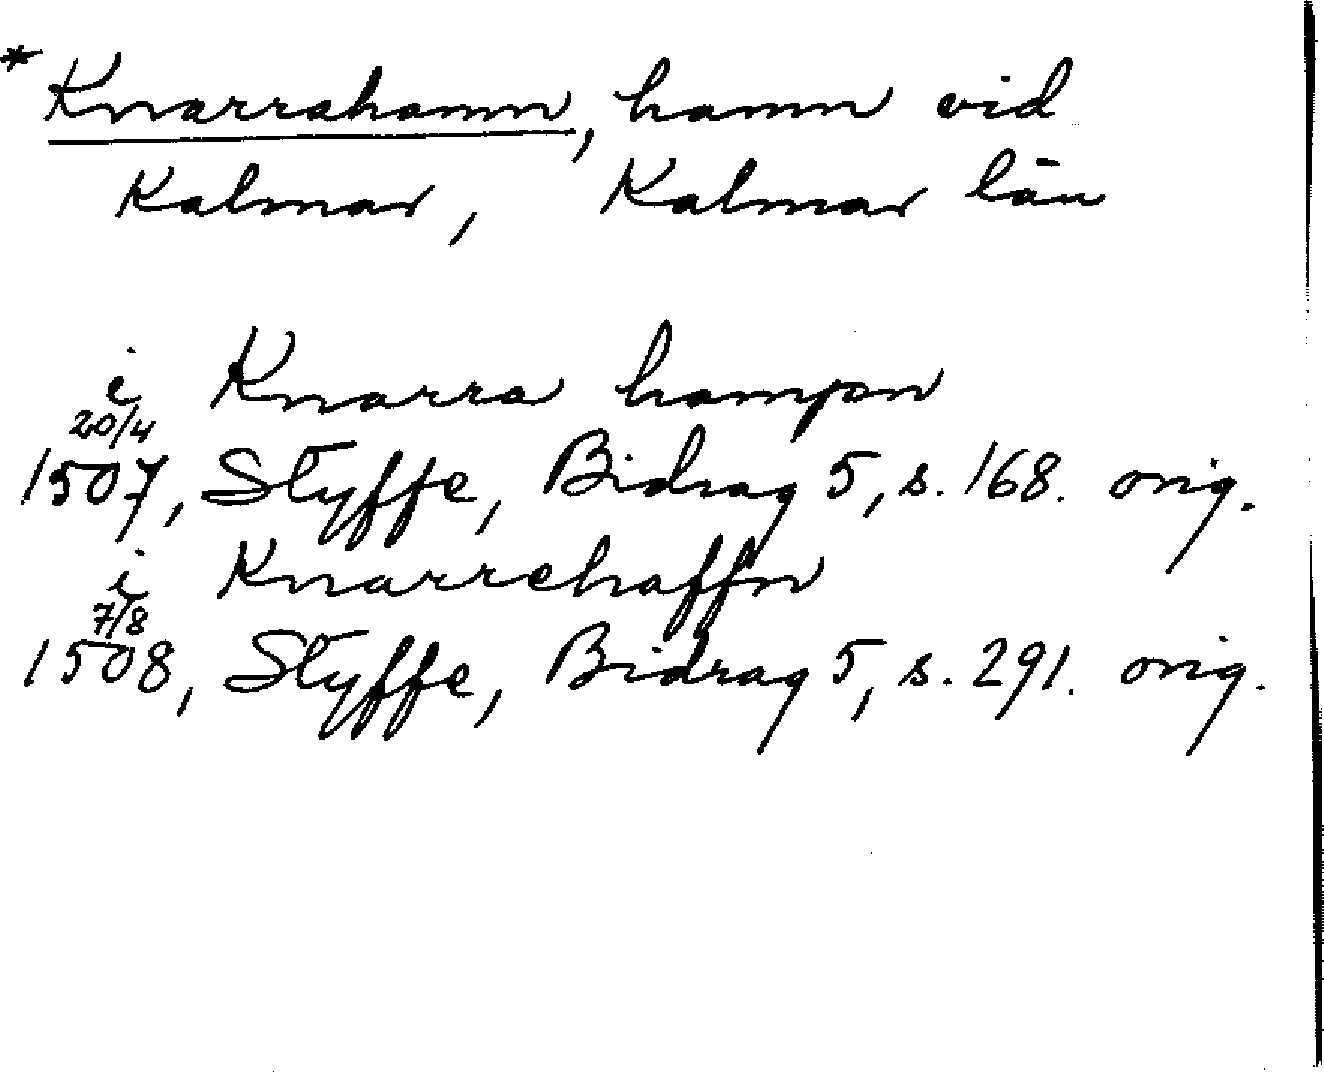 * Knarrahamn, hamn vid
Kalmar, Kalmar län
i Knarra hampn
20/4
1507, Styffe, Bidrag 5, s. 168. orig.
i Knarrehaffn
7/8
1508, Styffe, Bidrag 5, s. 291. orig.